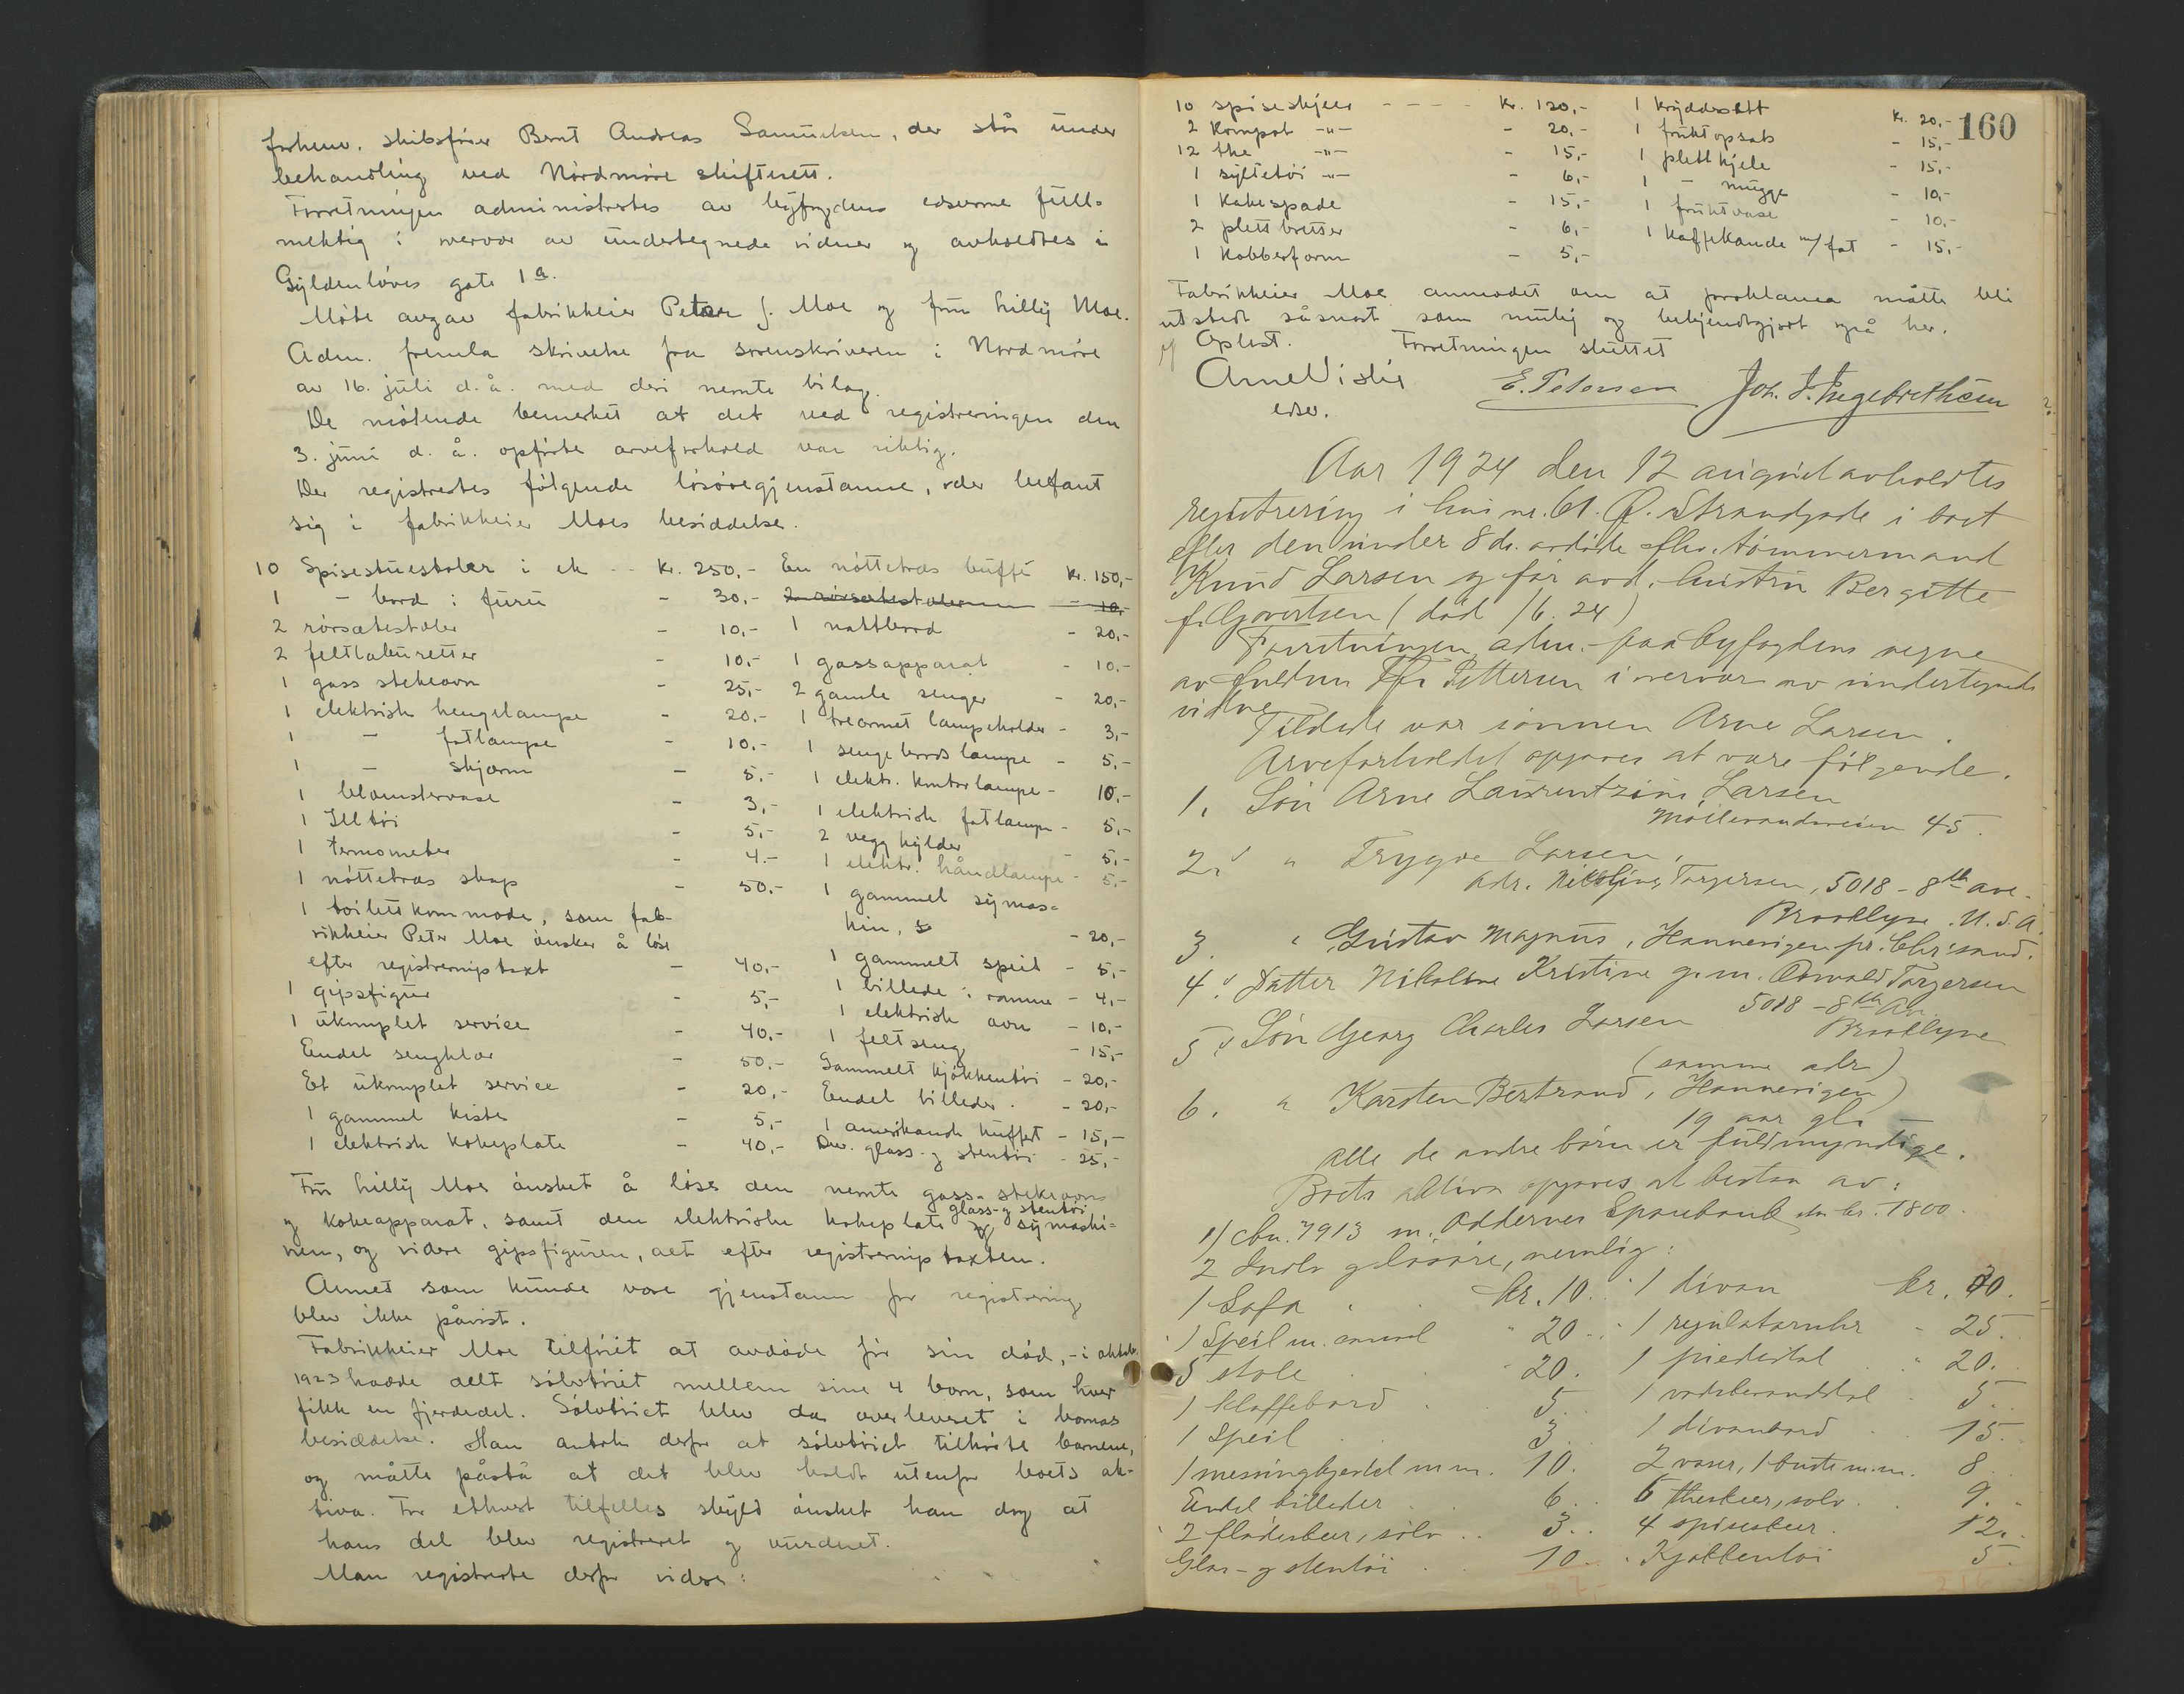 forhenv. skibsfører Bernt Andreas Samuelsen, der står under
behandling ved Nordmøre skifterett.
Forretningen administrertes av byfogdens edsvorne full-
mektig i overvær av undertegnede vidner og avholdtes i
Gyldenløves gate 1a.
Møte avgav fabrikkeier Peter J. Moe og fru Lilly Moe.
Adm. fremla skrivelse fra sorenskriveren i Nordmøre
av 16. juli d.å. med deri nevnte bilag.
De møtende bemerket at det ved registreringen den
3. juni d. å. opførte arveforhold var riktig.
Der registrertes følgende løsøregjenstande, der befant
sig i fabrikkeier Moes besiddelse.
10 Spisestuestoler i ek - - kr. 250,- En nøttetræs buffé kr. 150,-
1 - bord i furu - 30,- 2 rørsætestoler - 10,-
2 rørsætestoler - 10,- 1 nattbord - 20,-
2 felttaburetter - 10,- 1 gassapparat - 10,-
1 gass stekeovn - 25,- 2 gamle senger - 20,-
1 elektrisk hengelampe - 20,- 1 trearmet lampeholder - 3,-
1 - fotlampe - 10,- 1 sengebordslampe - 5,-
1 - skjærm - 5,- 1 elektr. kontorlampe - 10,-
1 blomstervase - 3,- 1 elektrisk fotlampe - 5,-
1 Illtøi - 5,- 2 vegghylder - 5,-
1 termometer - 4,- 1 elektr. håndlampe - 5,-
1 nøttetræs skap - 50,- 1 gammel symas-
1 toilettkommode, som fab- kin, - 20,-
rikkeier Peter Moe ønsker å løse
efter registreringstakst - 40,- 1 gammelt speil - 5,-
1 gipsfigur - 5,- 1 billede i ramme - 4,-
1 ukomplet service - 40,- 1 elektrisk ovn - 10,-
Endel sengklær - 50,- 1 feltseng - 15,-
Et ukomplet service - 20,- Gammelt kjøkkentøi - 20,-
1 gammel kiste - 5,- Endel billeder - 20,-
1 elektrisk kokeplate - 40,- 1 amerikansk kuffert - 15,-
Div. glass- og stentøi - 25,-
Fru Lilly Moe ønsket å løse den nevnte gass-stekeovn
og kokeapparat, samt den elektriske kokeplate glass- og stentøi og symaski-
nen, og videre gipsfiguren, alt efter registreringstaksten.
Annet som kunde være gjenstand for registrering
blev ikke påvist.
Fabrikkeier Moe tilføiet at avdøde før sin død, - i oktob.
1923 hadde delt sølvtøiet mellem sine 4 barn, som hver
fikk en fjerdedel. Sølvtøiet blev da overlevert i barnas
besiddelse. Han antok derfor at sølvtøiet tilhørte barnene,
og måtte påstå at det blev holdt utenfor boets ak-
tiva. For ethvert tilfelles skyld ønsket han dog at
hans del blev registreret og vurderet.
Man registrerte derfor videre:
160
10 spiseskjeer - - - - kr. 120,- 1 krydderstt kr. 20,-
2 kompot -"- - 20,- 1 fruktopsats - 15,-
12 the -"- - 15,- 1 plettkjele - 15,-
1 syltetøi -"- - 6,- 1 - mugge - 10,-
1 kakespade - 15,- 1 fruktvase - 10,-
2 plettbretter - 6,- 1 kaffekande m/fat - 15,-
1 kobberform - 5,-
Fabrikkeier Moe anmodet om at proklama måtte bli
utstedt såsnart som mulig og bekjendtgjort også her.
Oplest. Forretningen sluttet
Arne Vislie E. Petersen Joh. J. Ingebrethsen
edsv.
Aar 1924 den 12 august avholdtes
registrering i hus nr. 61. Ø. Strandgade i boet
efter den under 8 ds. avdøde fhv. tømmermand
Knud Larsen og før avd. hustru Bergitte
f. Govertsen (død /6. 24)
Forretningen adm. paa byfogdens vegne
av fuldm Pettersen i overvær av undertegnede
vidne
Tilstede var sønnen Arne Larsen.
Arveforholdet opgaves at være følgende.
1. Søn Arne Laurentzius Larsen
Møllevandsveien 45.
2. " Trygve Larsen,
adr. Nikoline Torgersen, 5018 - 8th ave.
Brooklyn. U.S.A.
3. " Gustav Magnus, Hannevigen pr. Chr.sand.
4. Datter Nikoline Kristine g.m. Osvald Torgersen
5018 - 8th Av.
Brooklyn
5 Søn Georg Charles Larsen
(samme adr)
6. " Karsten Bertrand, Hannevigen)
19 aar gl.
Alle de andre børn er fuldmyndige.
Boets aktiva opgaves at bestaa av:
1) cbn. 7913 m. Oddernes Sparebank kr. 1800.
2 Indbo og løsøre, nemlig:
1 Sofa kr. 10. 1 divan kr. 40.
1 Speil m. consol " 20. 1 regulatoruhr - 25.
5 stole 20. 1 piedestal " 20.
1 klaffebord 5. 1 vadskevandstol 5.
1 Speil 3. 1 divanbord 15.
1 messingkjedel m.m. 10. 2 vaser, 1 buste m.m. 8
Endel billeder 6. 6 theskeer, sølv 9.
2 flødeskeer, sølv 3. 4 spiseskeer 12.
Glas- og stentøi 10. Kjøkkentøi 5.